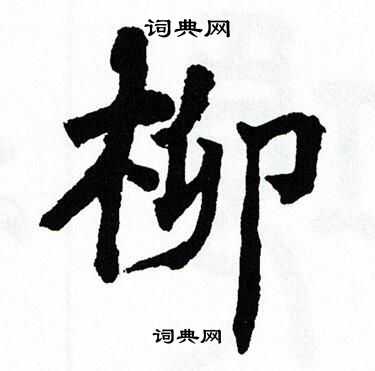 词典网
柳
词典网